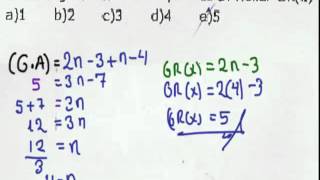 a)1 b)2 c)3 d)4 e)5
(G.A)=2n-3+n-4
5 =3n-7
5+7 = 3n
12 = 3n
12/3 = n
4=n
GR(x)=2n-3
GR(x)=2(4)-3
GR(x)=5